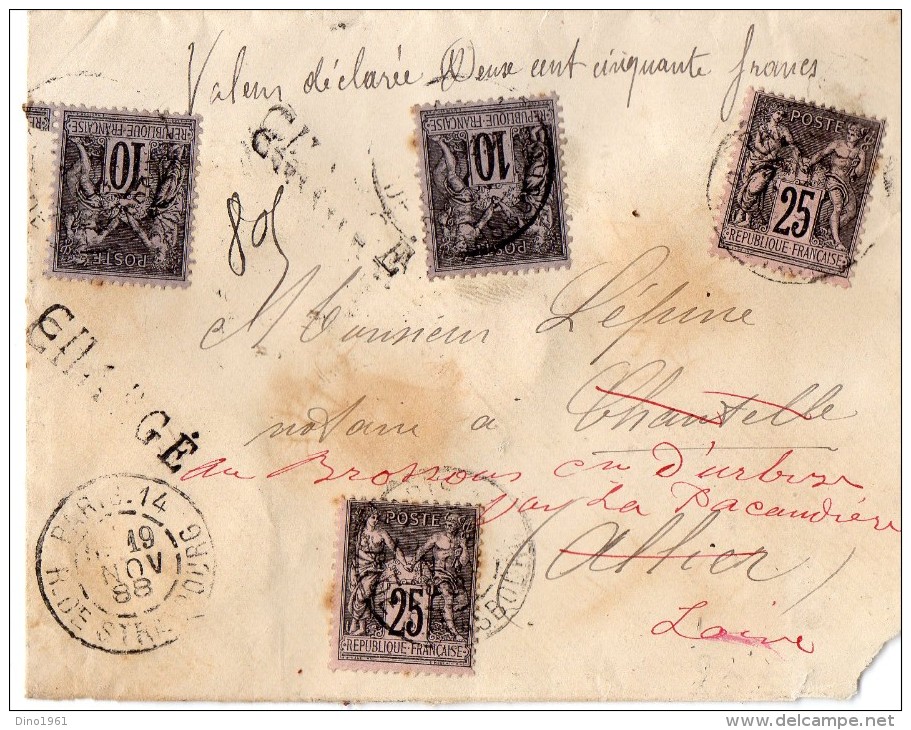 Valeur déclarée Deux cent cinquante francs
REPUBLIQUE FRANÇAISE
10
POSTES
REPUBLIQUE FRANÇAISE
10
POSTES
POSTE
25
REPUBLIQUE FRANÇAISE
CHARGÉ
Monsieur Lépine
CHARGÉ
notaire à Chantelle
au Brossous cn D'urbize
par La Pacaudière
(Allier)
Loire
PARIS.14
R. DE STRASBOURG
19
NOV
88
POSTE
25
REPUBLIQUE FRANÇAISE
Dino1961
delcampe.net